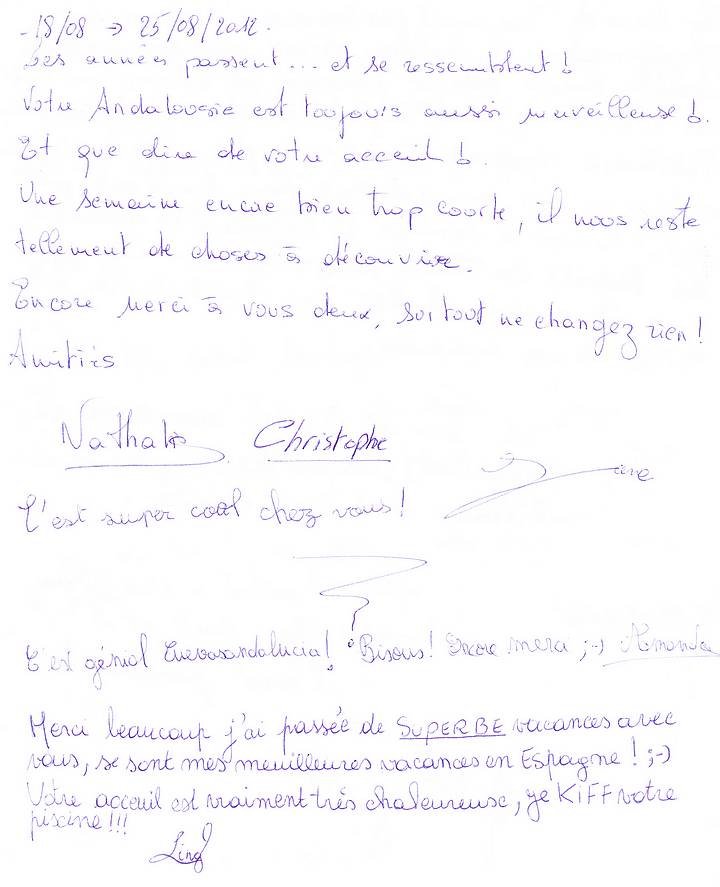 -18/08 → 25/08/2012.
Les années passent... et se ressemblent!
Votre Andalousie est toujours aussi merveilleuse!
Et que dire de votre acceuil!
Une semaine encore bien trop courte, il nous reste
tellement de choses à découvrir.
Encore Merci à vous deux, surtout ne changez rien!
Amitiés
Nathalie Christophe
C'est super cool chez vous!
C'est génial Cuevasandalucia! Bisous! Encore merci ;-) Amanda
Merci beaucoup j'ai passée de SUPERBE vacances avec
vous, se sont mes meuilleures vacances en Espagne! ;-)
Votre acceuil est vraiment très chaleureuse, je KIFF votre
piscine!!!